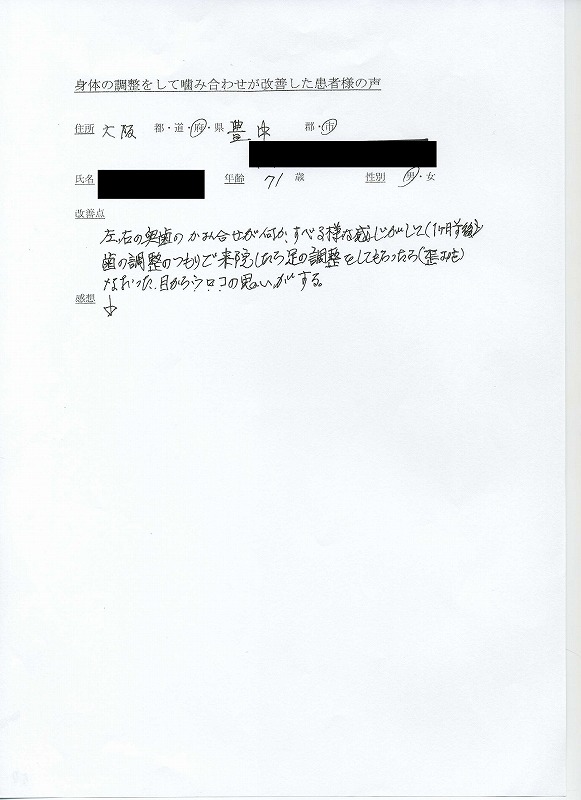 身体の調整をして噛み合わせが改善した患者様の声
住所 大阪 都・道・府・県 豊中 郡・市
氏名 年齢 71 歳 性別 男・女
改善点
左、右の奥歯のかみ合せが何か、すべる様な感じがして(1ヶ月前後)
歯の調整のつもりで来院したら足の調整をしてもらったら(歪みを)
なおった、目からウロコの思いがする。
感想
↓